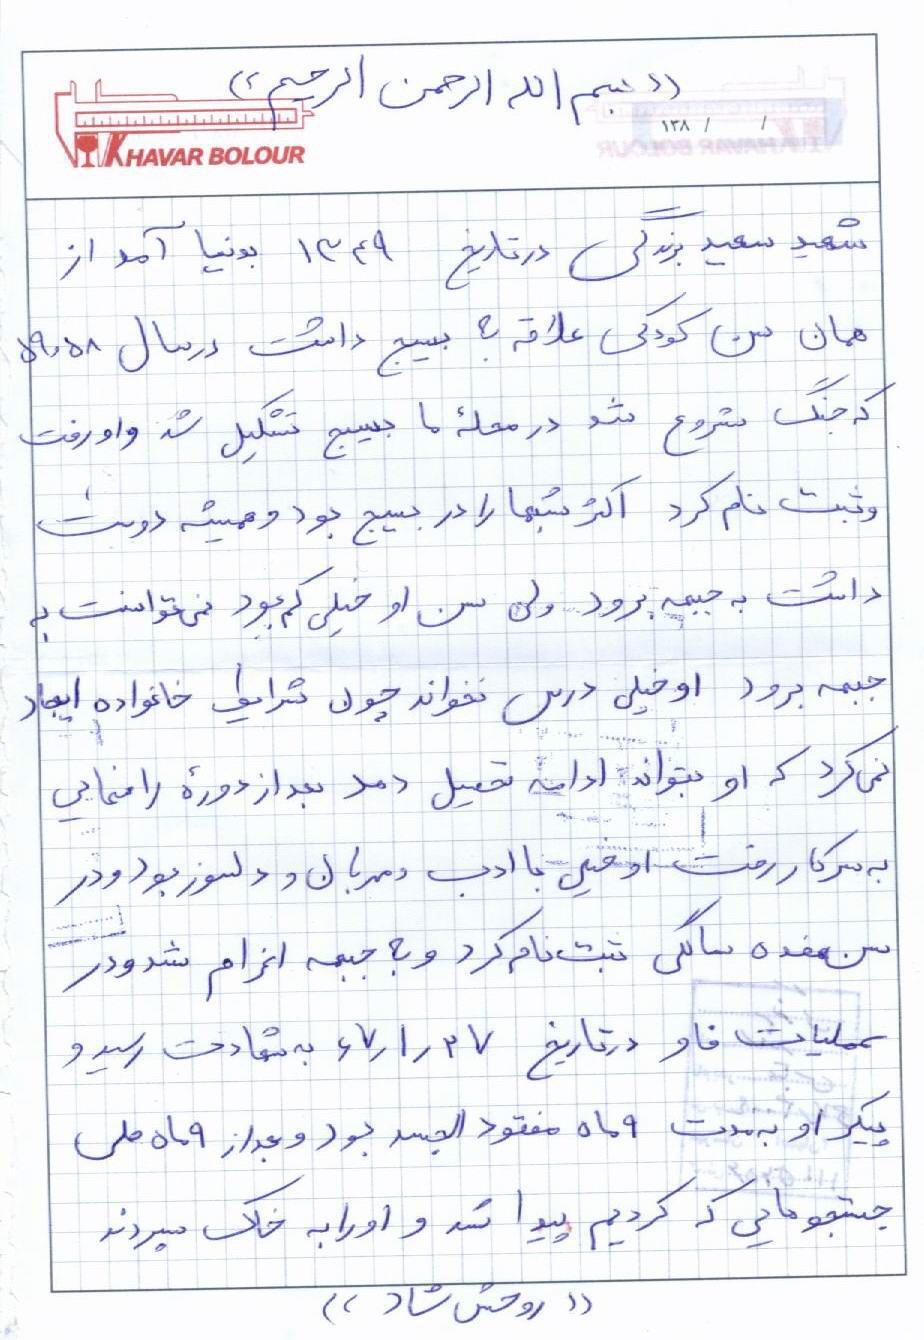 ((بسم الله الرحمن الرحیم))
KHAVAR BOLOUR
/ / ۱۳۸
شهید سعید بزندگی درتاریخ ۱۳۴۹ بدنیا آمد از
همان سن کودکی علاقه به بسیج داشت درسال ۵۹،۵۸
که جنگ شروع شد در محلهٔ ما بسیج تشکیل شد و او رفت
و ثبت نام کرد اکثر شبها را در بسیج بود و همیشه دوست
داشت به جبهه برود ولی سن او خیلی کم بود نمی توانست به
جبهه برود او خیلی درس نخواند چون شرایط خانواده ایجاد
نمی کرد که او بتواند ادامه تحصیل دهد بعد از دورهٔ راهنمایی
به سر کار رفت او خیلی با ادب و مهربان و دلسوز بود و در
سن هفده سالگی ثبت نام کرد و به جبهه اعزام شد و در
عملیات فاو درتاریخ ۶۷/۱/۲۷ به شهادت رسید و
پیکر او به مدت ۹ ماه مفقود الجسد بود و بعد از ۹ ماه طی
جستجو هایی که کردیم پیدا شد و او را به خاک سپردند
((روحش شاد))